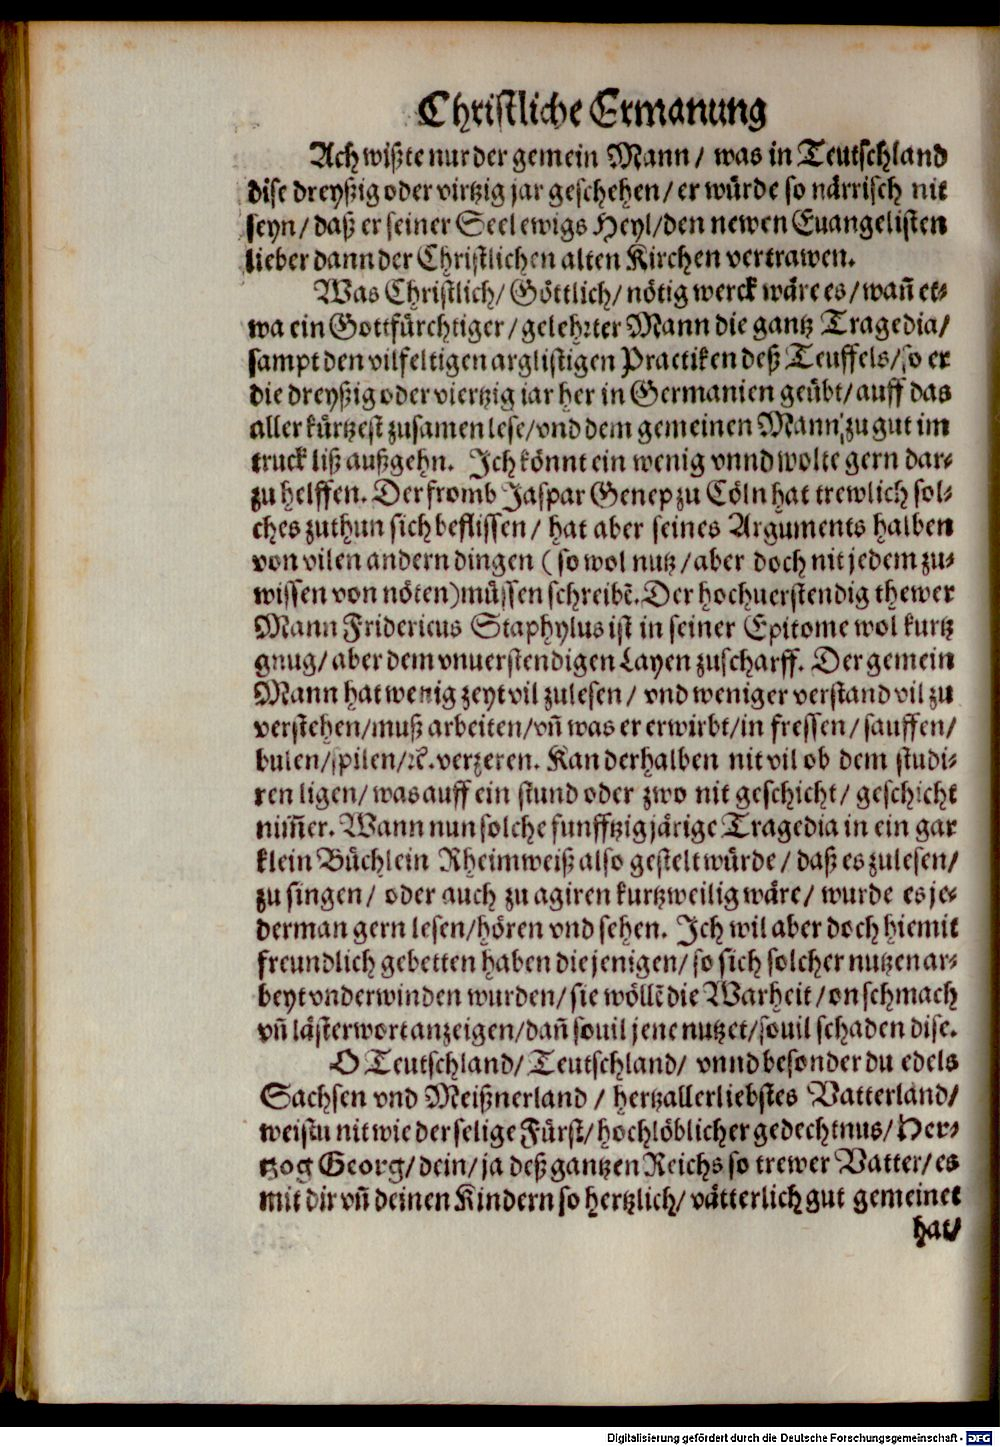 Christliche Ermanung
Ach wißte nur der gemein Mann / was in Teutschland
dise dreyßig oder virtzig jar geschehen / er würde so närrisch nit
seyn / daß er seiner Seel ewigs Heyl / den newen Euangelisten
lieber dann der Christlichen alten Kirchen vertrawen.
Was Christlich / Göttlich / nötig werck wäre es / wañ et-
wa ein Gottfürchtiger / gelehrter Mann die gantz Tragedia /
sampt den vilfeltigen arglistigen Practiken deß Teuffels / so er
die dreyßig oder viertzig iar her in Germanien geübt / auff das
aller kürtzest zusamen lese / vnd dem gemeinen Mann zu gut im
truck liß außgehn. Ich könnt ein wenig vnnd wolte gern dar-
zu helffen. Der fromb Jaspar Genep zu Cöln hat trewlich sol-
ches zuthun sich beflissen / hat aber seines Arguments halben
von vilen andern dingen ( so wol nutz / aber doch nit jedem zu-
wissen von nöten) müssen schreibẽ. Der hochuerstendig thewer
Mann Fridericus Staphylus ist in seiner Epitome wol kurtz
gnug / aber dem vnuerstendigen Layen zuscharff. Der gemein
Mann hat wenig zeyt vil zulesen / vnd weniger verstand vil zu
verstehen / muß arbeiten / vñ was er erwirbt / in fressen / sauffen /
bulen / spilen / ꝛc. verzeren. Kan derhalben nit vil ob dem studi-
ren ligen / was auff ein stund oder zwo nit geschicht / geschicht
nim̃er. Wann nun solche funfftzigjärige Tragedia in ein gar
klein Büchlein Rheimweiß also gestelt würde / daß es zulesen /
zu singen / oder auch zu agiren kurtzweilig wäre / wurde es je-
derman gern lesen / hören vnd sehen. Ich wil aber doch hiemit
freundlich gebetten haben die jenigen / so sich solcher nutzen ar-
beyt vnderwinden wurden / sie wöllẽ die Warheit / on schmach
vñ lästerwort anzeigen / dañ souil jene nutzet / souil schaden dise.
O Teutschland / Teutschland / vnnd besonder du edels
Sachsen vnd Meißnerland / hertzallerliebstes Vatterland /
weistu nit wie der selige Fürst / hochlöblicher gedechtnus / Her-
tzog Georg / dein / ja deß gantzen Reichs so trewer Vatter / es
mit dir vñ deinen Kindern so hertzlich / vätterlich gut gemeinet
hat /
Digitalisierung gefördert durch die Deutsche Forschungsgemeinschaft - DFG